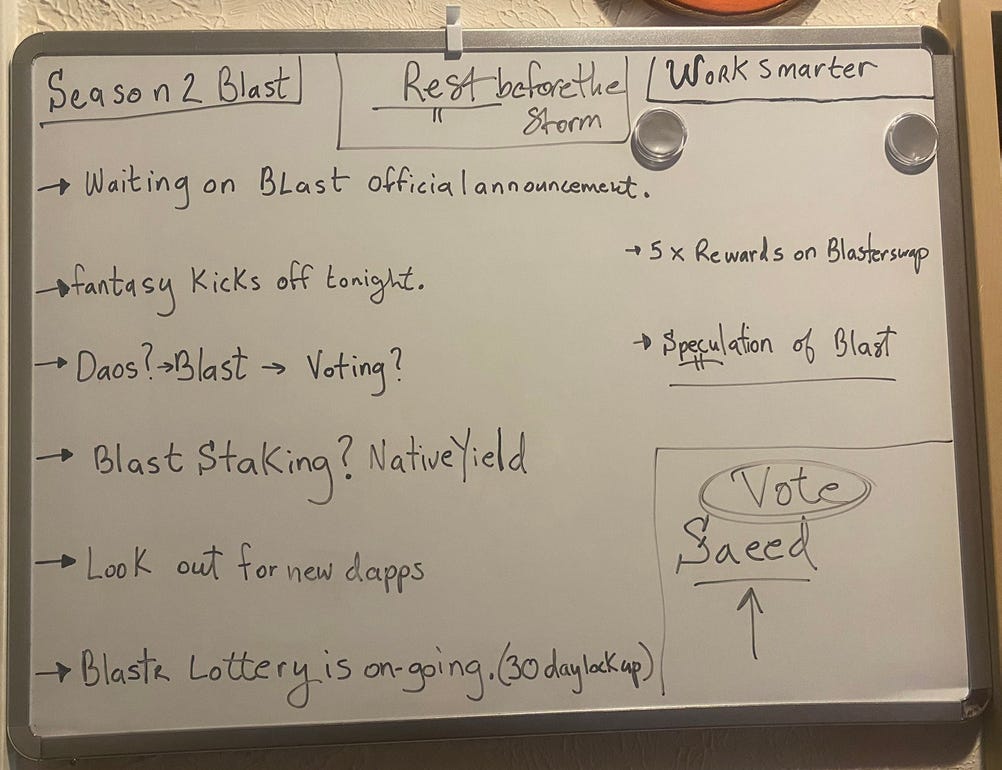 Season 2 Blast
Rest before the
Storm
Work Smarter
→ Waiting on BLast official announcement.
→ fantasy Kicks off tonight.
→ Daos? → Blast → Voting?
→ Blast Staking? Native Yield
→ Look out for new dapps
→ Blastr Lottery is on-going. (30 day lock up)
→ 5x Rewards on Blasterswap
→ Speculation of Blast
Vote
Saeed